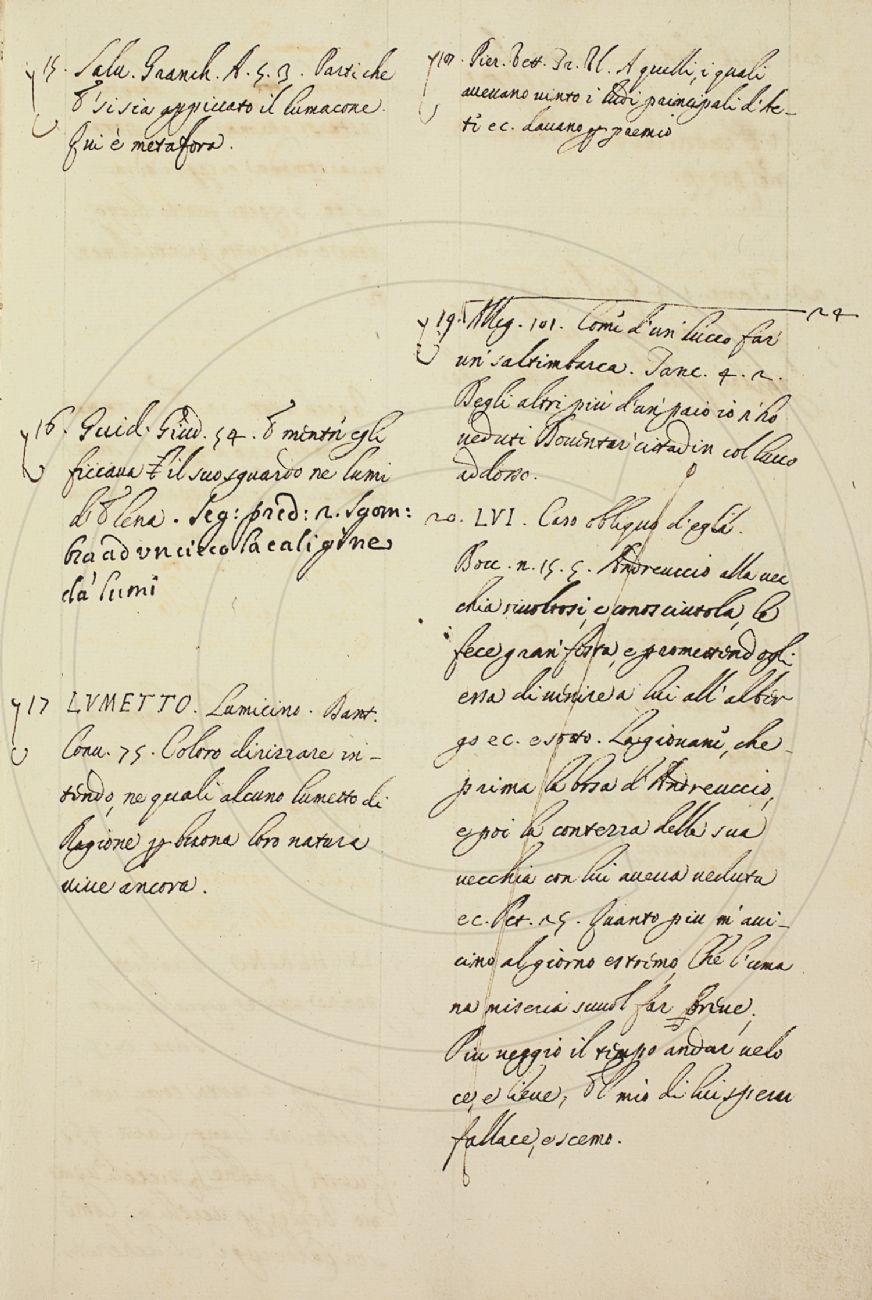 15. Salv. Granch. A. 5. 3. Parti che
E' si sia appiccato il lumacone.
Qui è metafora.
16. Guid. Giud. 54. E mentr' egli
ficcava il suo sguardo ne lumi
d' Elena. Seg: pred: 2. Sgom:
bra ad un cieco la caligine
da' lumi
17 LVMETTO. Lumicino. Dant.
Conv. 75. Coloro dirizzare in-
tendo, ne quali alcuno lumetto di
Ragione per buona loro natura
vive ancora.
Pier. Vett. A quelli, i quali
avevano vinto i ludi principali
ec. davano per premio
24
19. Alleg. 101. Com' d'un lucco far
un' saltimbarca. Tanc. 4. 2.
Degli altri più d'un paio io n' ho
veduti Doventar cittadin col lucco
addosso.
20. LVI. Caso obliquo d'egli.
Bocc. n. 15. 5. Andreuccio alla vec
chia rivoltosi, e conosciutola, le
fece gran' festa, e promettendogli
essa di venire a lui all' alber
go ec. e sotto. La giovane, che
prima la borsa d' Andreuccio,
e poi la contezza della sua
vecchia con lui aveva veduta
ec. Pet. 25. Quanto piu m' avi-
cino al giorno estremo, Che l'uma
na miseria suol far breve,
Piu veggio il tempo andar velo
ce, e lieve, E'l mio di lui sperar
fallace, e scemo.